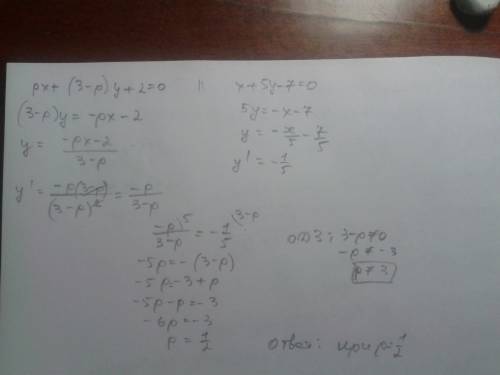 px + (3-p)y + 2 = 0 || x + 5y - 7 = 0
(3-p)y = -px - 2
5y = -x - 7
y = \frac{-px-2}{3-p}
y = -\frac{x}{5} - \frac{7}{5}
y' = \frac{-p(3-p)}{(3-p)^2} = \frac{-p}{3-p}
y' = -\frac{1}{5}
\frac{-p}{3-p}^{\backslash 5} = -\frac{1}{5}^{\backslash 3-p}
-5p = -(3-p)
-5p = -3 + p
-5p - p = -3
-6p = -3
p = \frac{1}{2}
ОДЗ: 3-p ≠ 0
-p ≠ -3
p ≠ 3
ответ: при p = \frac{1}{2}